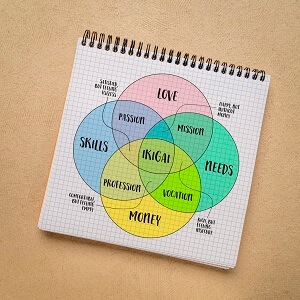 LOVE
SATISFIED,
BUT FEELING
USELESS
HAPPY, BUT
WITHOUT
MONEY
PASSION
MISSION
SKILLS
IKIGAI
NEEDS
PROFESSION
VOCATION
COMFORTABLE,
BUT FEELING
EMPTY
BUT
FEELING
INSECURE
MONEY